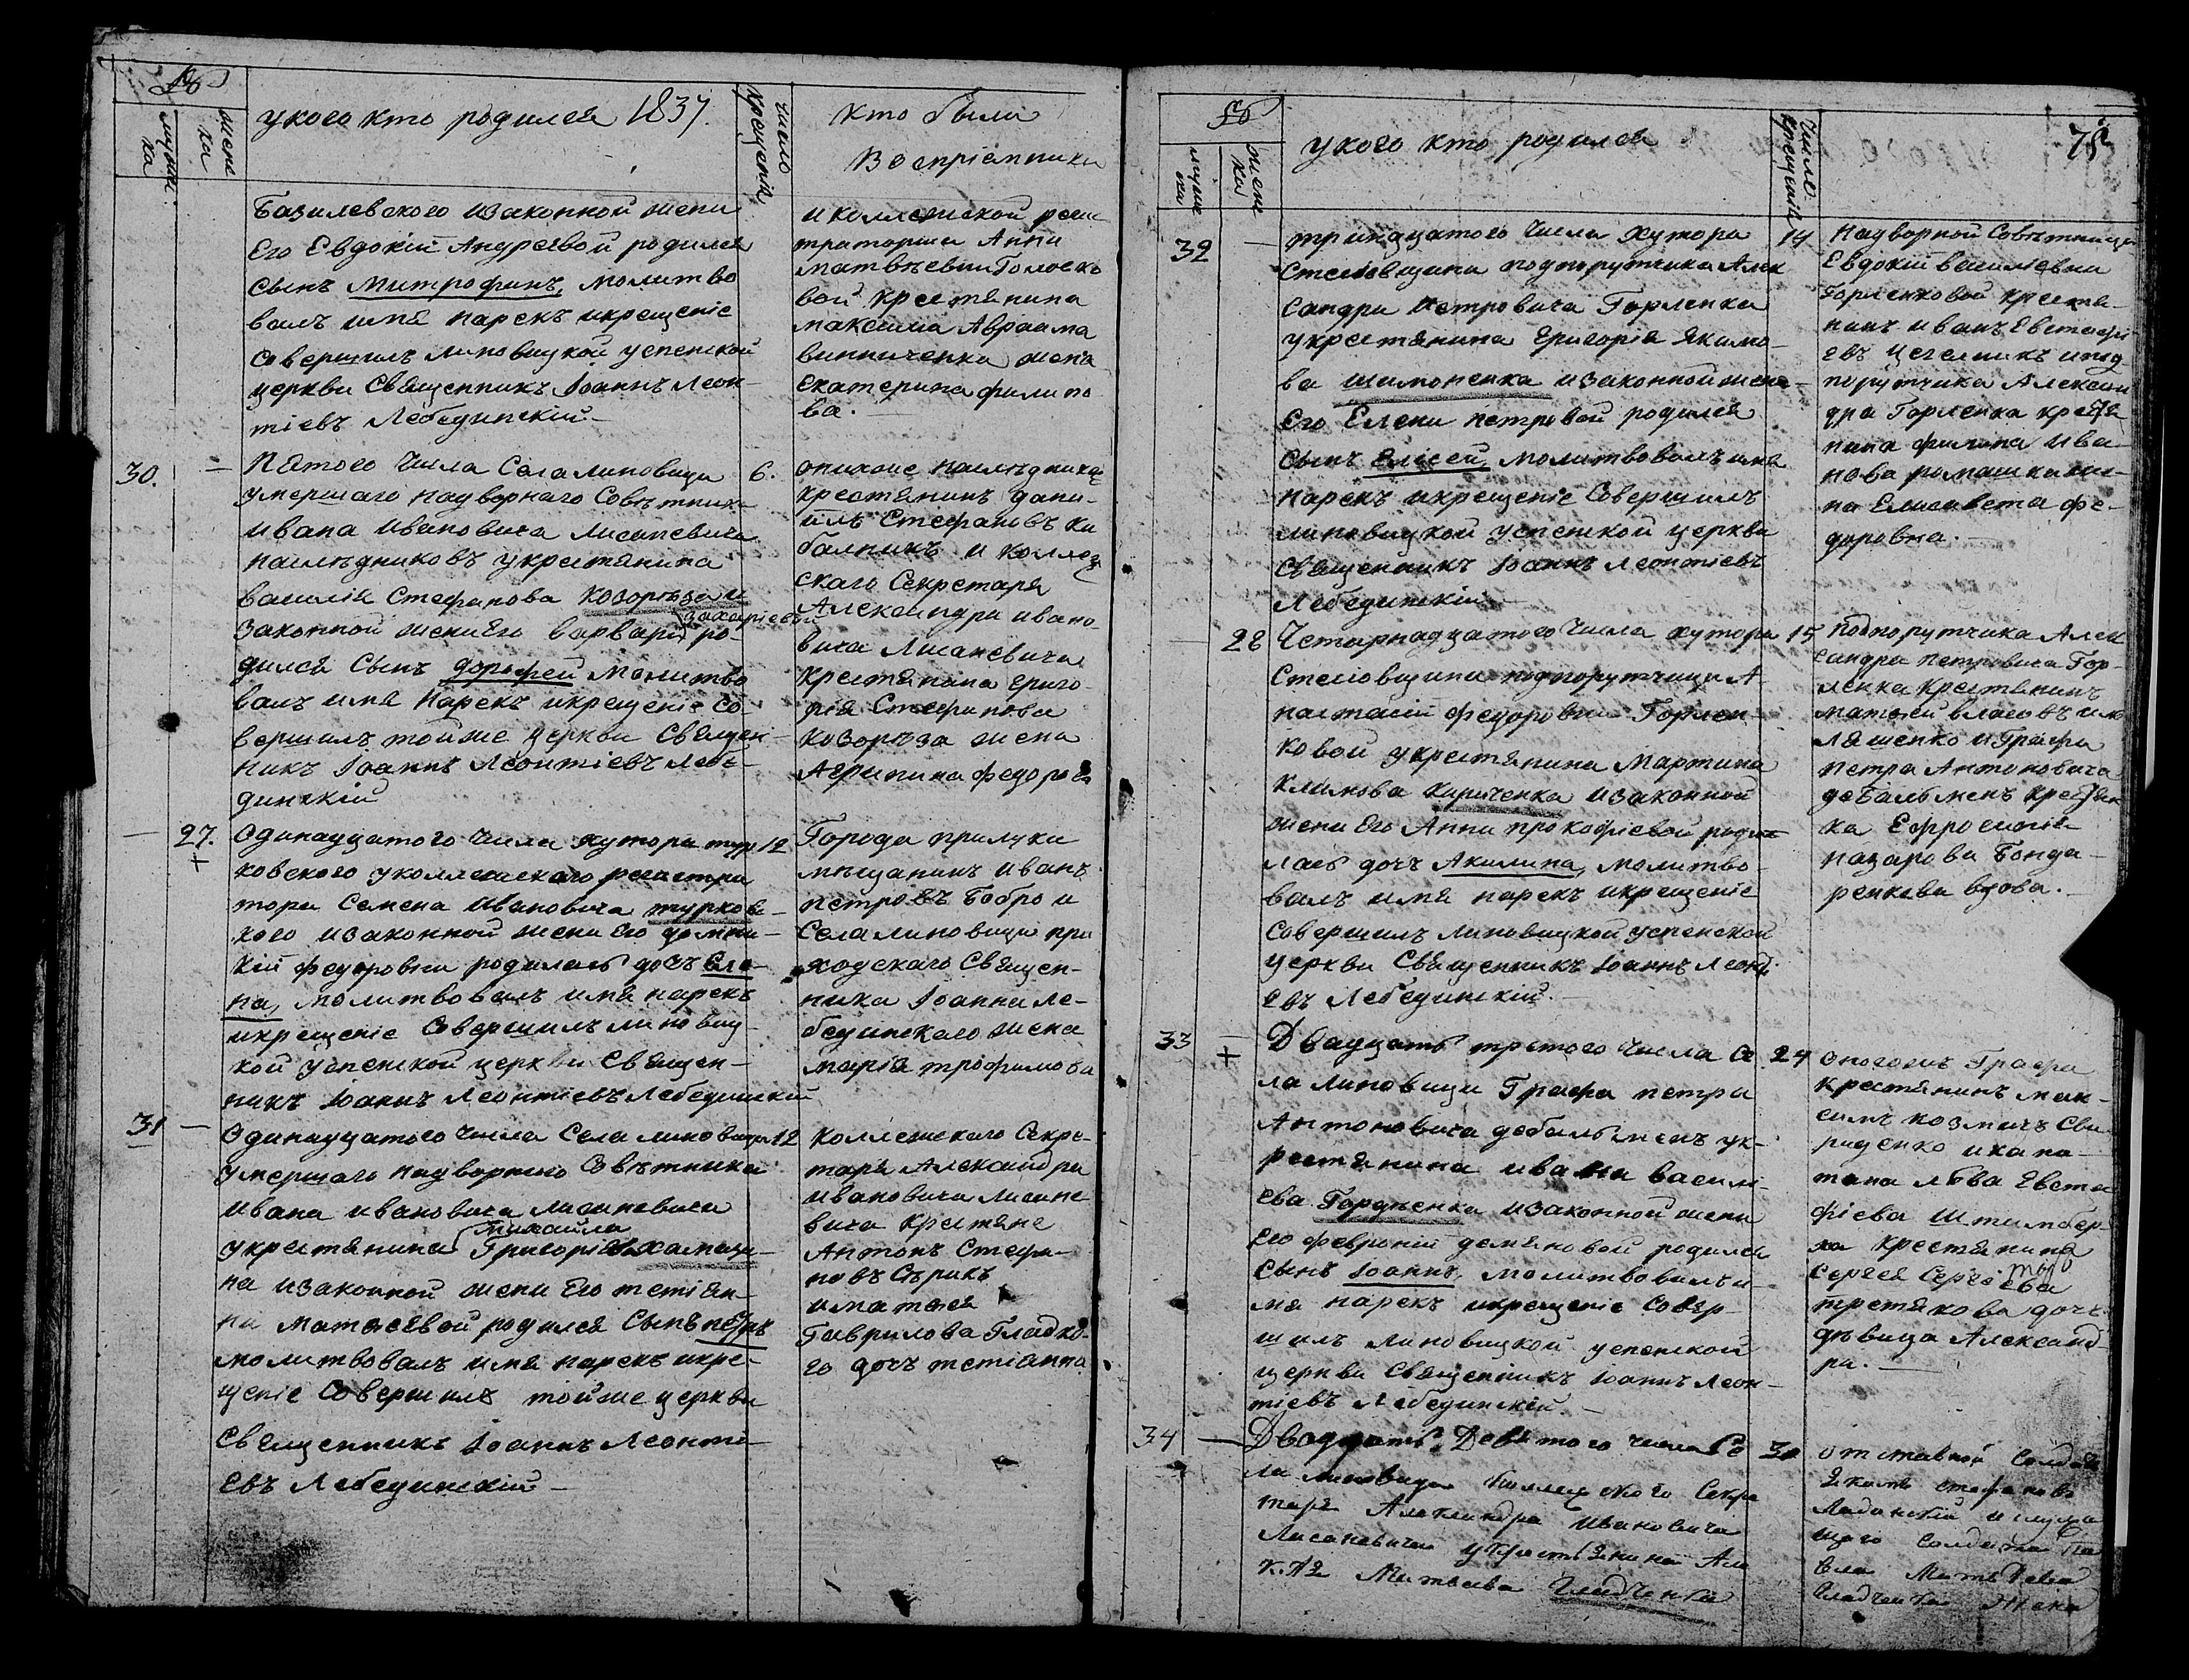 №
мужеска
женска
у кого кто родился 1837.
число крещенія
кто были
Воспріемники
Базилевского изаконной жени
Его Евдокіи Андреевой родился
сынъ Митрофанъ, молитво
валъ имя нарекъ икрещеніе
совершилъ линовицкой успенской
церкви Священникъ Іоаннъ Леон-
тіевъ Лебединскій
и коллежской реги
траторши Анни
матвѣевни Голоско
вой крестянина
максима Авраама
винниченка жена
Екатерина филипо
ва.
30. –
Пятого числа Села линовици
умершаго надворнаго Совѣтника
ивана ивановича Лисаневича
наследниковъ укрестянина
василія Стефанова Козорѣза и
законной жени Его варвари захаріевой ро-
дился Сынъ дорофей молитво
валъ имя нарекъ икрещеніе со-
вершилъ тойже церкви Священ-
никъ Іоаннъ Леонтіевъ Лебе-
динскій
6.
онихже наследника
крестянинъ дани-
илъ Стефановъ ки
балникъ и коллеж
ского Секретаря
Александра ивано-
вича Лисаневича
крестянина григо-
рія Стефанова
козорѣза жена
Агрипина федоров
– 27. +
Одинадцатого числа хутора тур
ковского уколлежского регистра
тора Семена ивановича турков-
кого изаконной жени его домни-
кіи федоровни родилась дочъ Еле-
на, молитвовалъ имя нарекъ
икрещеніе совершилъ линовиц-
кой успенской церкви Священ-
никъ Іоаннъ Леонтіевъ Лебединскій
12
Города прилуки
мещанинъ иванъ
петровъ Бобро и
Села линовици при
ходского Священ-
ника Іоанна Ле-
бединского жена
марія трофимова
31 –
Одинадцатого числа Села линовици
умершаго надворного Совѣтника
ивана ивановича лисаневича
укрестянина михаила Григоріева
на изаконной жени Его тетіян-
ни матѳеевой родился Сынъ петръ
молитвовалъ имя нарекъ икре-
щеніе Совершилъ тойже церкви
Священникъ Іоаннъ Леонті-
евъ Лебединскій –
12
коллежского Секре-
таря Александра
ивановича лисане
вича крестяне
Антонъ Стефа-
новъ Сѣрикъ
иматѳея
Гаврилова Гладко-
го дочъ тетіанна
№
мужеска
женска
у кого кто родился
число крещенія
75
32 –
тринадцатого числа хутора
подпорутчика Алек
сандра Петровича Горленка
укрестянина Григорія Якимо-
ва шимоненка изаконной жени-
Его Елени петровой родился
сынъ Елисей, молитвовалъ имя
нарекъ икрещеніе Совершилъ
линовицкой успенской церкви
Священникъ Іоаннъ Леонтіевъ
Лебединскій
14
Надворной Совѣтници
Евдокіи василіевни
Горленковой крестя-
нинъ иванъ Евстафі
евъ цегелникъ ипод
порутчика Алексан
дра Горленка крестя
нина филипа ива-
нова ромашки же-
на Елисавета фе-
доровна.
– 28
Четирнадцатого числа хутора
подпорутчици А-
настасіи федоровни Горлен-
ковой укрестянина Мартина
Климова Кириченка изаконной
жени Его Анни прокофіевой роди-
лась дочъ Акилина, молитво-
валъ имя нарекъ икрещеніе
Совершилъ линовицкой успенской
церкви Священникъ Іоаннъ Леонті
евъ Лебединскій.
15
Подпорутчика Алек
сандра петровича Гор-
ленка крестянинъ
матѳей власовъ
ляшенко и Графа
петра Антоновича
дебалменъ крестян
ка Ефросинія
назарова Бонда-
ренкова вдова.
33 +
Двадцать третого числа Се
ла линовици Графа петра
Антоновича дебалменъ ук-
рестянина ивана василі-
ева Гордѣенка изаконной жени
Его февроніи демяновой родился
сынъ Іоаннъ, молитвовалъ и-
мя нарекъ икрещеніе Совер-
шилъ линовицкой успенской
церкви Священникъ Іоаннъ Леон-
тіевъ Лебединскій –
24
оногожъ Графа
крестянинъ мак-
симъ козмичъ Сви
риденко икапи-
тана лва Евста
фіева Штимбер-
ха крестянина
Сергея Сергіева
третякова дочъ
дѣвица Александ-
ра. –
34 –
Двадцать Девятого числа Се
ла линовици Коллежского Секре
таря Александра Ивановича
Лисаневича укрестянина
Матвеева Гладченка
30
отставной Солдатъ
Якимъ стефановъ
Ладанскій и служа
щаго солдата Па
вла Матвеева
Гладченка Жена